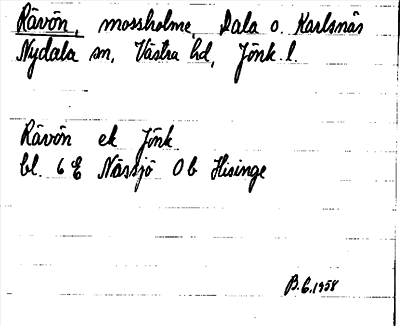 Rävön, mossholme, Dala o. Karlsnäs
Nydala sn, Västra hd, Jönk. l.
Rävön ek Jönk
bl. 6 E Nässjö Ob Hisinge
B.E.1958